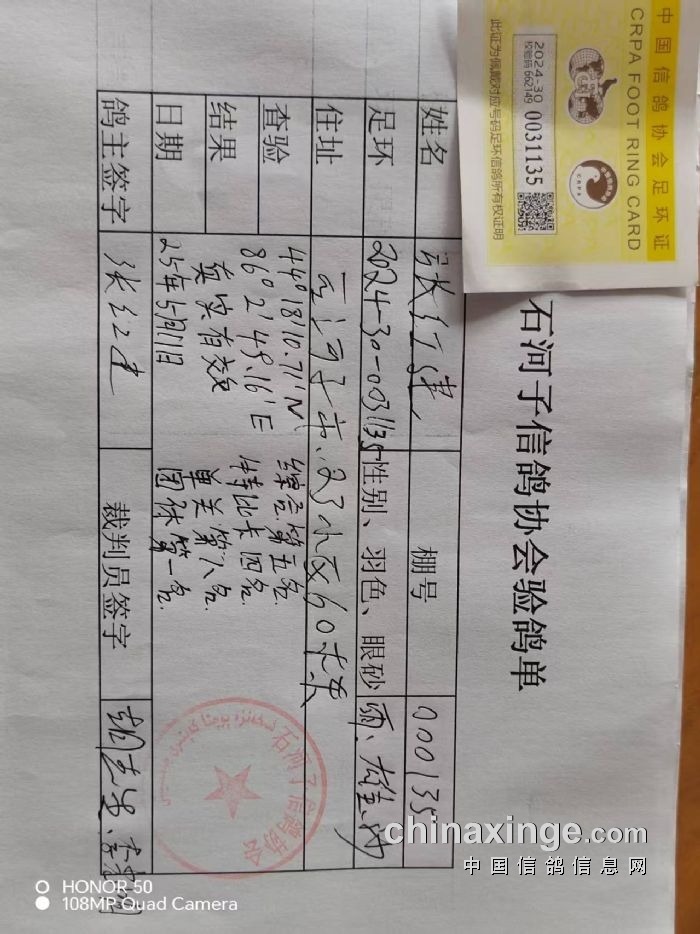 中国信鸽协会足环证
CRPA FOOT RING CARD
2024-30
校验码 662149
0031135
CRPA
此证为佩戴对应号码足环信鸽所有权证明
石河子信鸽协会验鸽单
姓名 张红建 棚号 000135
足环 2024-30-0031135 性别、羽色、眼砂 雨、雄
住址 石河子市、23小区60栋
查验 44°18'10.71"N 综合第五名
86°2'49.16"E 特比卡四名
结果 真实有效 单关第八名
日期 25年5月11日 团体第一名
鸽主签字 张红建 裁判员签字
石河子信鸽协会
chinaxinge.com
中国信鸽信息网
HONOR 50
108MP Quad Camera